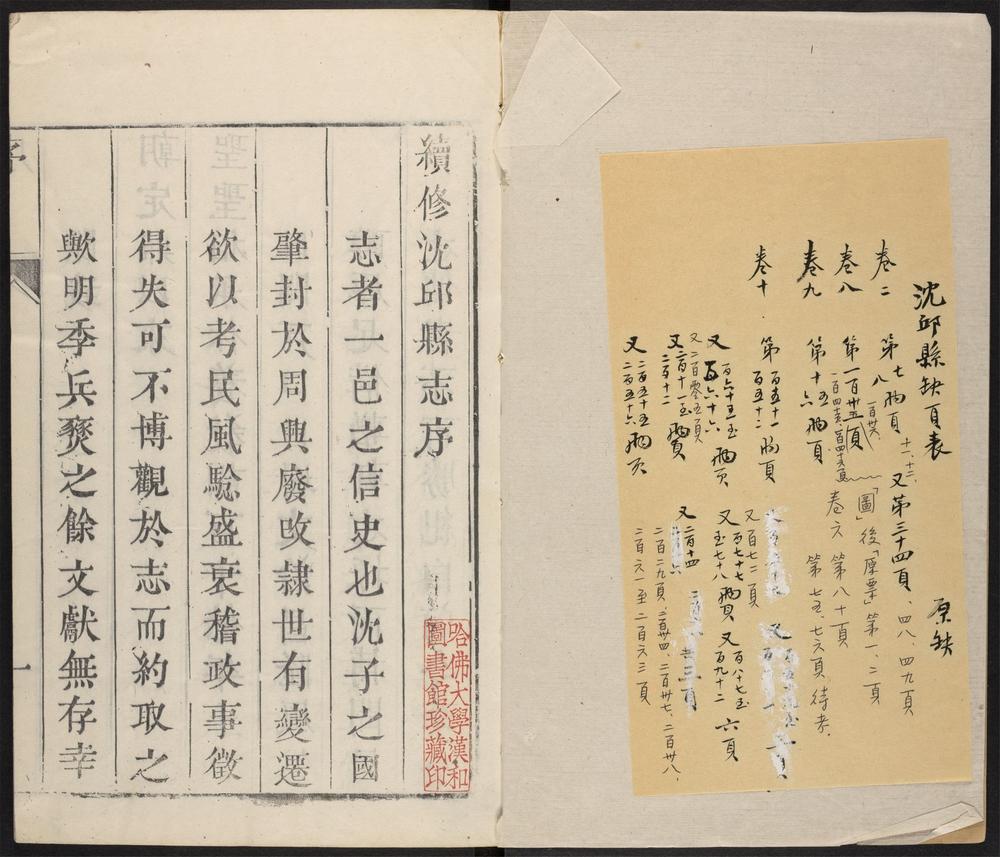 沈邱縣缺頁表
原缺
卷二
第七八兩頁
十一、十二、
又第三十四頁、四八、四九頁
卷八
第一百卅五頁
一百卅八
「圖」後「原票」第一、二頁
卷六 第八十頁
卷九
第十五六兩頁
第七五、七六頁 待考
卷十
第百五十一百五十二兩頁
又百六十五至百六十六兩頁
又百七十七至七十八兩頁
又百八十七至百九十二六頁
又百七二頁
又二百零五頁
又二百十一至二百十二兩頁
又二百十四
二百二九頁、二百卅四、二百卅七、二百卅八、
又二百五十五二百五十六兩頁
二百六一至二百六三頁
續修沈邱縣志序
志者一邑之信史也沈子之國
肇封於周興廢改隷世有變遷
欲以考民風騐盛衰稽政事徵
得失可不博觀於志而約取之
歟明季兵燹之餘文獻無存幸
序
一
哈佛大學漢和
圖書館珍藏印